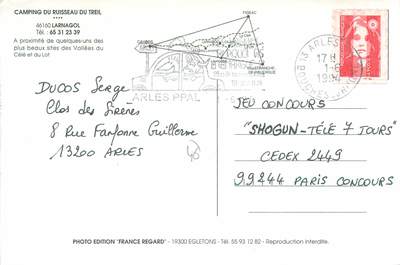 CAMPING DU RUISSEAU DU TREIL
****
46160 LARNAGOL
Tél : 65 31 23 39
A proximité de quelques-uns des
plus beaux sites des Vallées du
Célé et du Lot
FIGEAC
CAHORS
VILLEFRANCHE
ARLES PPAL
ARLES
17H
DUCOS Serge
Clos des Sirènes
8 Rue Fanfonne Guillerme
13200 ARLES
JEU CONCOURS
"SHOGUN - TÉLÉ 7 JOURS"
CEDEX 2449
99244 PARIS CONCOURS
PHOTO EDITION "FRANCE REGARD" - 19300 EGLETONS - Tél. 55 93 12 82 - Reproduction interdite.